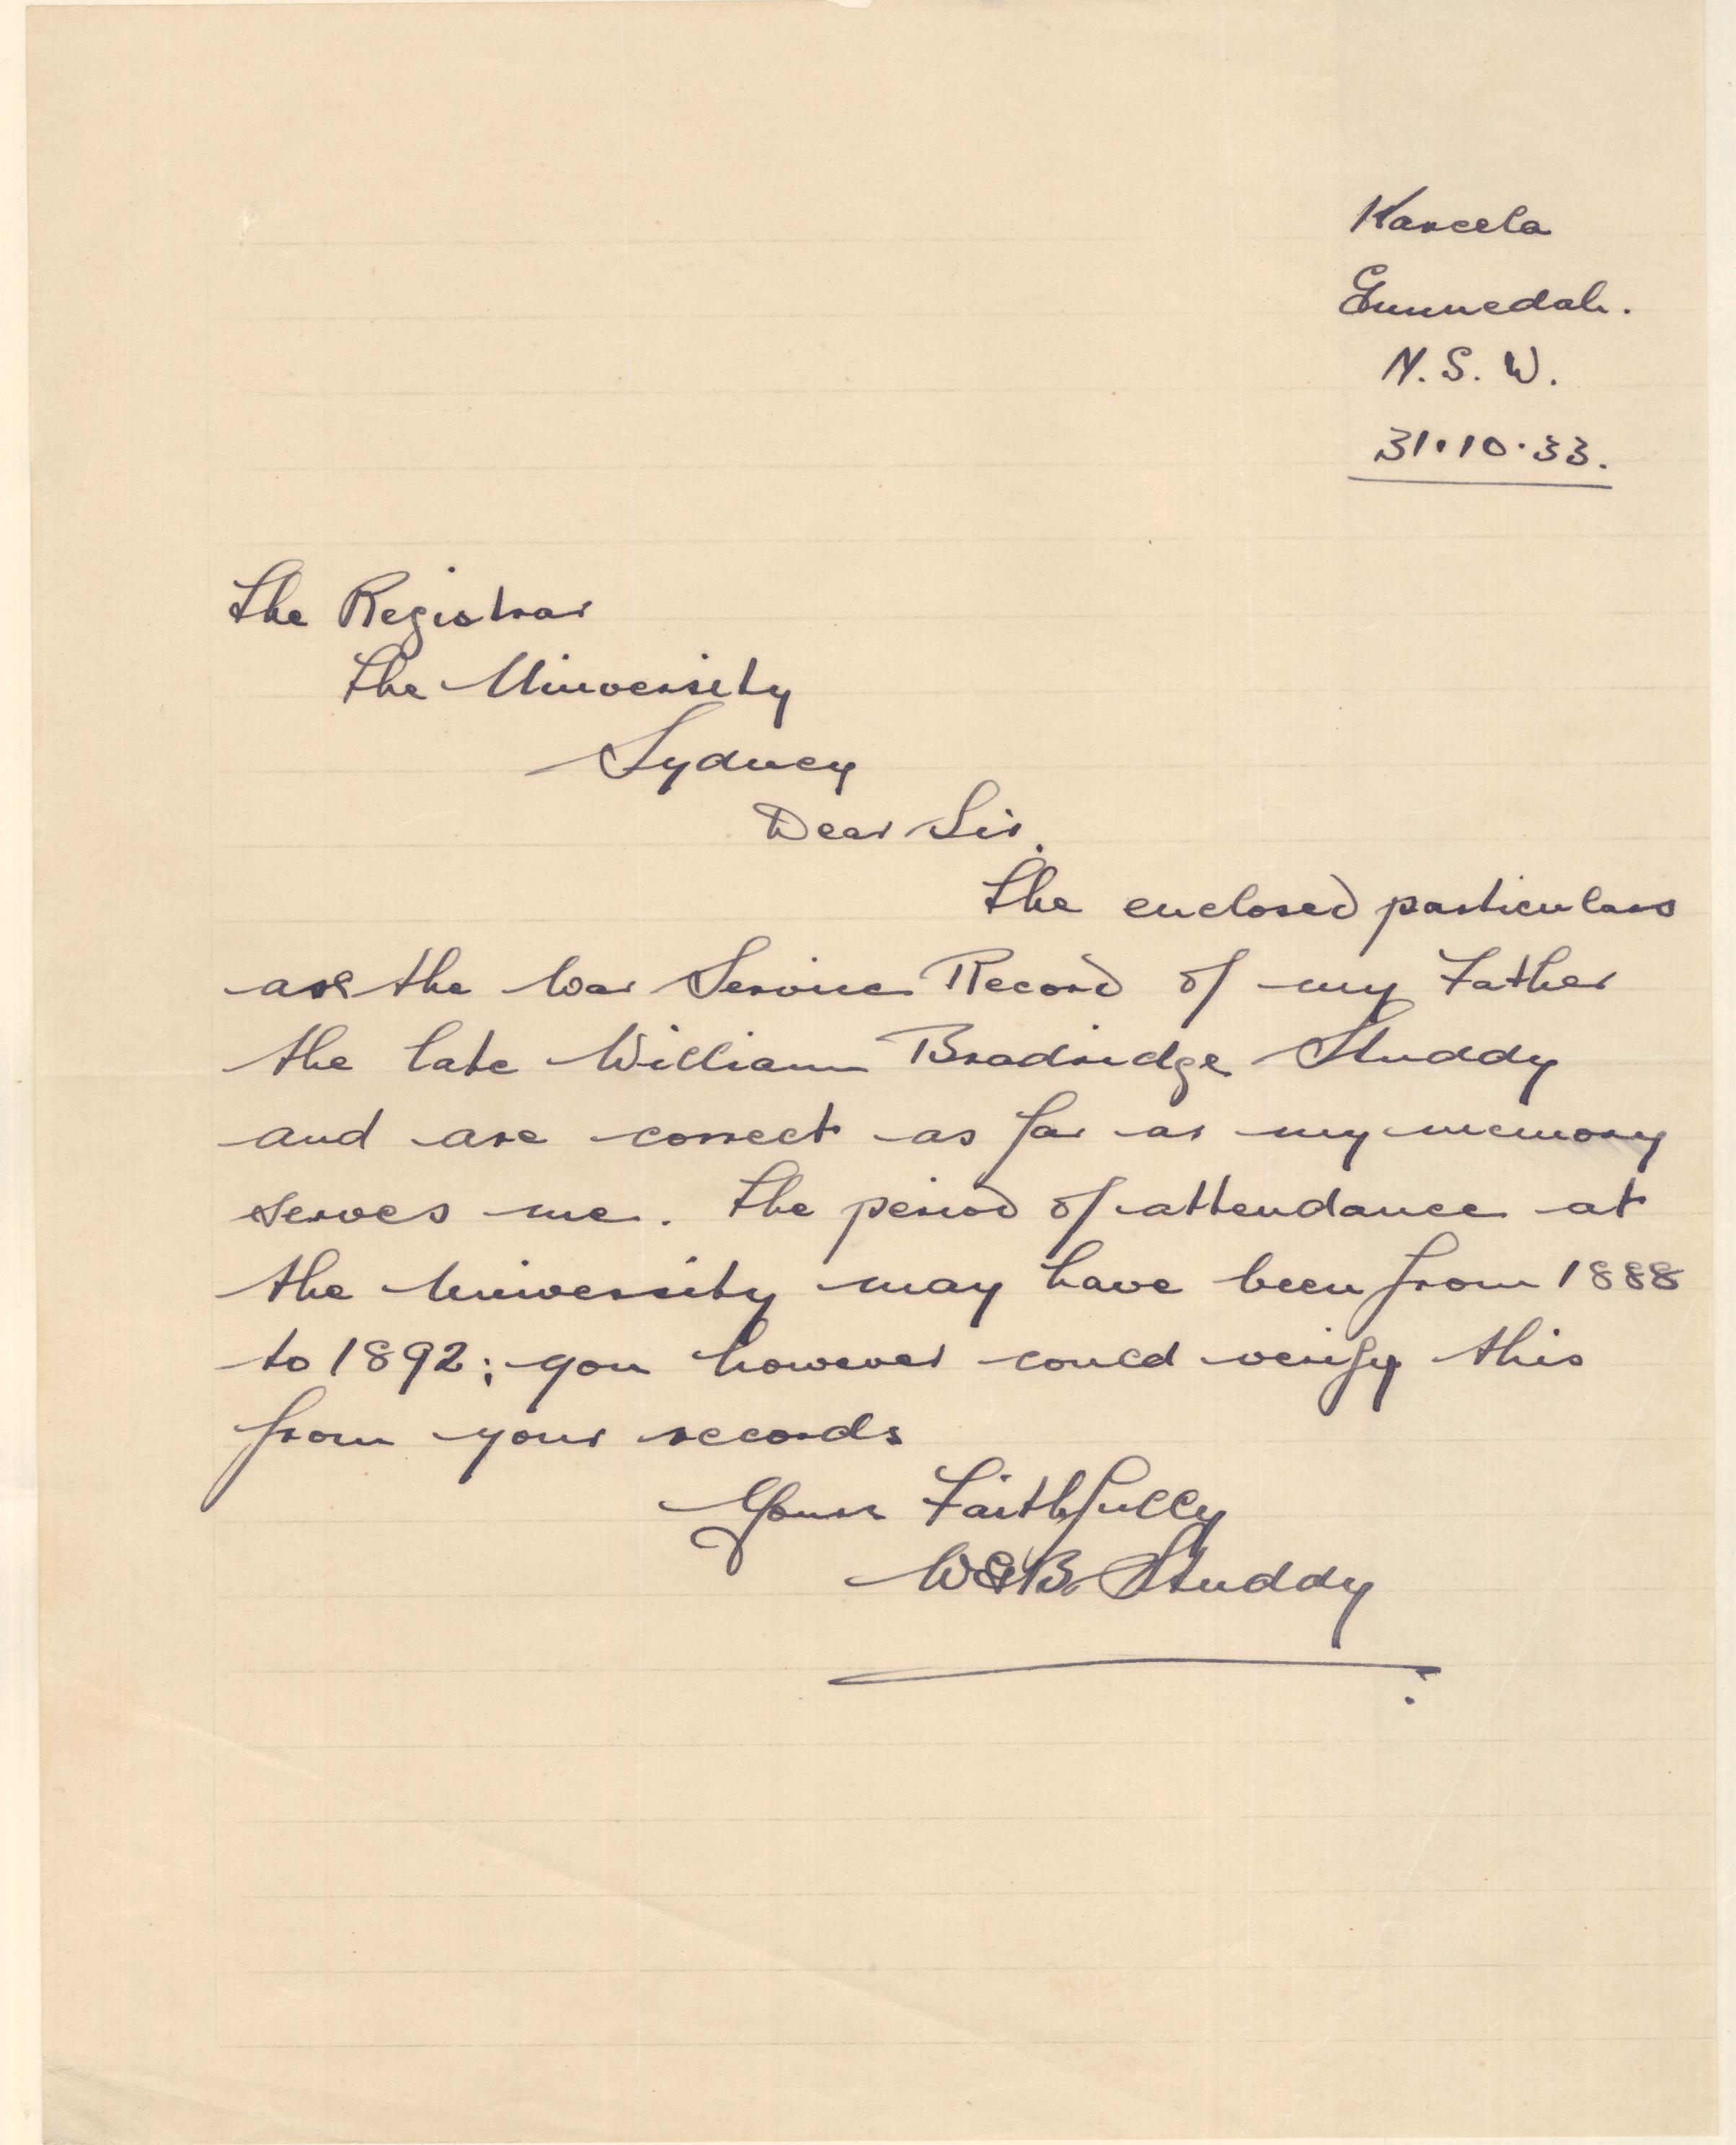 Kareela
Gunnedah.
N. S. W.
31.10.33.
The Registrar
The University
Sydney
Dear Sir,
The enclosed particulars
are the War Service Record of my Father
the late William Bradridge Studdy
and are correct as far as my memory
serves me. The period of attendance at
the University may have been from 1888
to 1892; you however could verify this
from your records
Yours Faithfully
Studdy